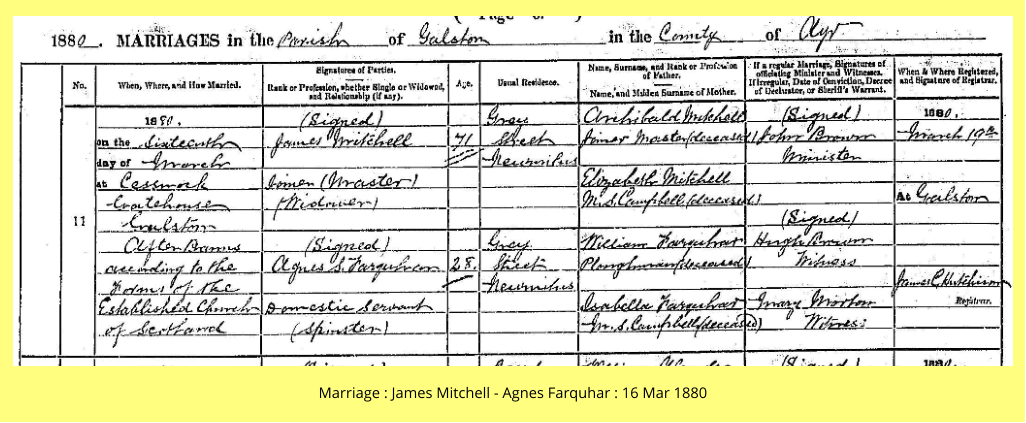 ( Page 6. )
1880. MARRIAGES in the Parish of Galston in the County of Ayr
No.
When, Where, and How Married.
Signatures of Parties.
Rank or Profession, whether Single or Widowed, and Relationship (if any).
Age.
Usual Residence.
Name, Surname, and Rank or Profession of Father.
Name, and Maiden Surname of Mother.
If a regular Marriage, Signatures of officiating Minister and Witnesses.
If irregular, Date of Conviction, Decree of Declarator, or Sheriff's Warrant.
When & Where Registered, and Signature of Registrar.
11
1880.
on the Sixteenth
day of March
at Cessnock
Gatehouse
Galston
After Banns
according to the
Forms of the
Established Church
of Scotland
(Signed)
James Mitchell
Joiner (Master)
(Widower)
(Signed)
Agnes S. Farquhar
Domestic Servant
(Spinster)
71
28.
Grey
Street
Newmilns
Grey
Street
Newmilns
Archibald Mitchell
Joiner Master (deceased)
Elizabeth Mitchell
M.S. Campbell (deceased)
William Farquhar
Ploughman (deceased)
Isabella Farquhar
M.S. Campbell (deceased)
(Signed)
John Brown
Minister
(Signed)
Hugh Brown
Witness
Mary Morton
Witness
1880.
March 19th
At Galston
James C. Hutchison
Registrar.
(Signed)
1880.
Marriage : James Mitchell - Agnes Farquhar : 16 Mar 1880